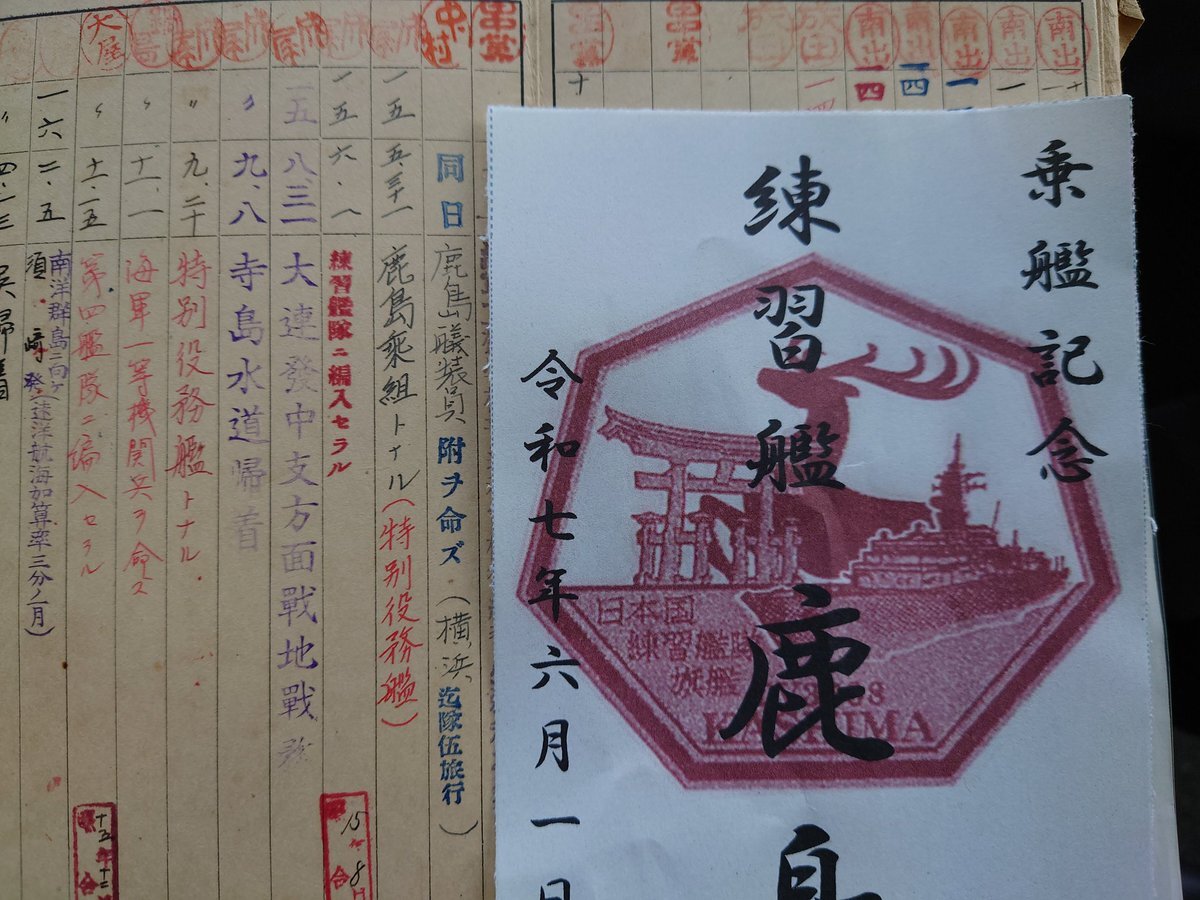 乗艦記念
練習艦
鹿島
令和七年六月一日
日本国
練習艦隊
旗艦
KASHIMA
南出
南出
南出
南出
南出
一四
一四
十
中村
同日
鹿島艤装員附ヲ命ズ(横浜迄隊伍旅行)
一五 五.三十一
鹿島乗組トナル(特別役務艦)
一五 六.一
練習艦隊ニ編入セラル
15
8
一五 八.三一
大連發中支方面戰地戰務
〃 九.八
寺島水道帰着
〃 九.二十
特別役務艦トナル.
〃 十一.一
海軍一等機関兵ヲ命ズ
大屋
〃 十一.一五
第四艦隊ニ編入セラル
十五年十二
合
一六 二.五
南洋群島ニ向ケ(遠洋航海加算率三分ノ一月)
須.崎発
〃 四.二三
呉帰着